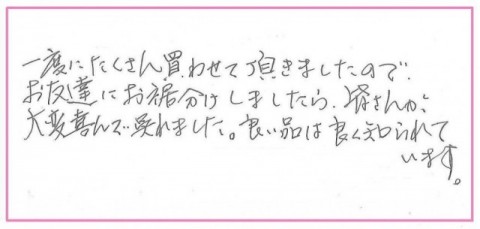 一度にたくさん買わせて頂きましたので、
お友達にお裾分けしましたら、皆さんが、
大変喜んで呉れました。良い品は良く知られて
います。